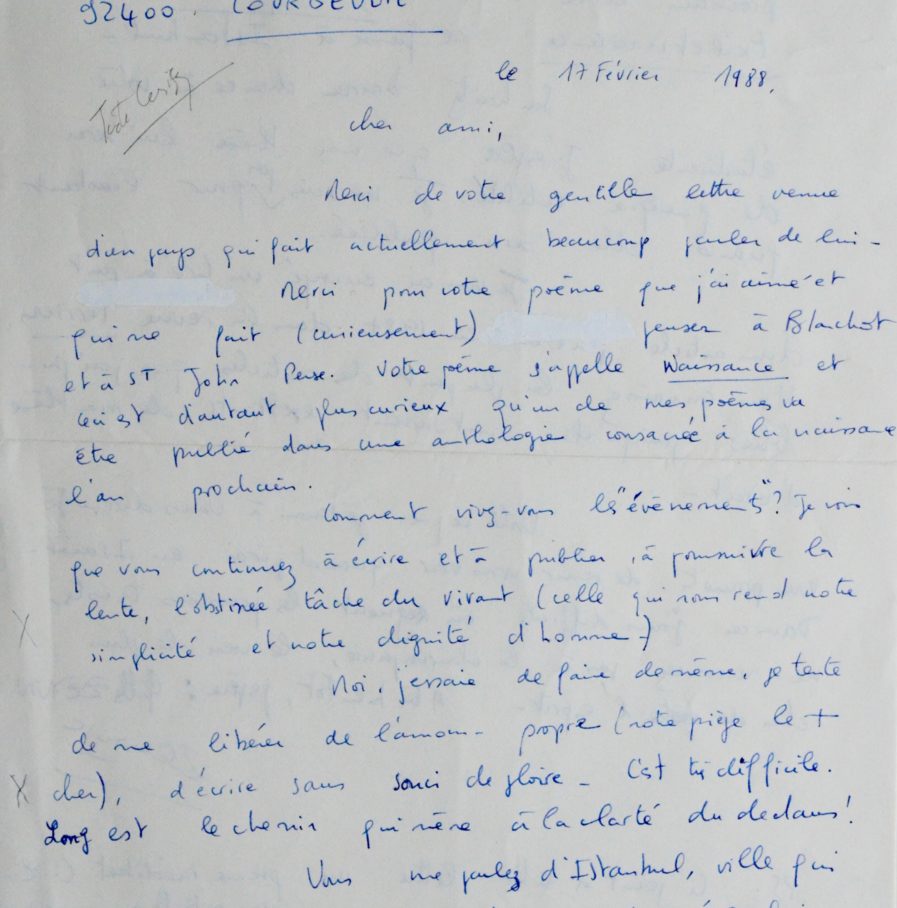 92400. COURBEVOIE
le 17 Février 1988.
Texte
cher ami,
Merci de votre gentille lettre venue
d'un pays qui fait actuellement beaucoup parler de lui -
Merci pour votre poème que j'ai aimé et
qui me fait (curieusement) penser à Blanchot
et à ST John Perse. Votre poème s'appelle Naissance et
ceci est d'autant plus curieux qu'un de mes poèmes va
être publié dans une anthologie consacrée à la naissance
l'an prochain.
Comment vivez-vous les "évènements"? Je vois
que vous continuez à écrire et à publier, à poursuivre la
lente, l'obstinée tâche du vivant (celle qui nous rend notre
simplicité et notre dignité d'homme -)
X
Moi, j'essaie de faire de même, je tente
de me libérer de l'amour-propre (notre piège le +
X cher), d'écrire sans souci de gloire - C'est très difficile.
Long est le chemin qui mène à la clarté du dedans!
Vous me parlez d'Istanbul, ville qui